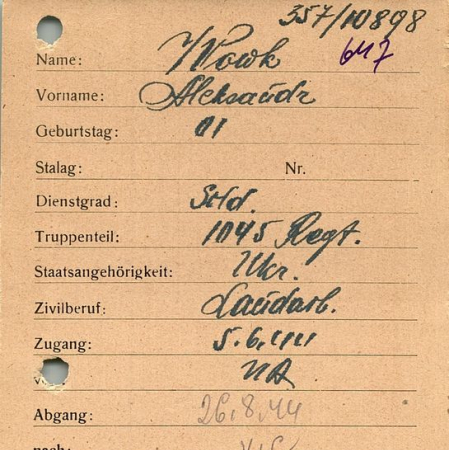 357/10898
Name: Wowk 647
Vorname: Aleksandr
Geburtstag: 01
Stalag: Nr.
Dienstgrad: Sold.
Truppenteil: 1045 Regt.
Staatsangehörigkeit: Ukr.
Zivilberuf: Landarb.
Zugang: 5.6.44
NA
Abgang: 26.8.44
nach: